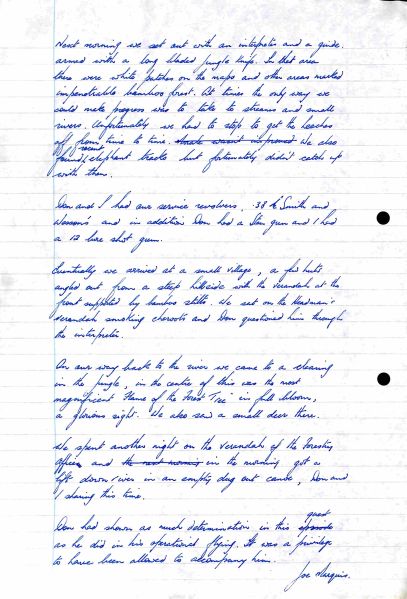 Next morning we set out with an interpreter and a guide.
armed with a long bladed jungle knife. In that area
there were white patches on the maps and other areas marked
impenetrable bamboo forest. At times the only way we
could make progress was to take to streams and small
rivers. Unfortunately we had to stop to get the leeches
off from time to time. We also
found recent elephant tracks but fortunately didn't catch up
with them.
Don and I had our service revolvers, .38 Smith and
Wesson's and in addition Don had a Sten gun and I had
a 12 bore shot gun.
Eventually we arrived at a small village, a few huts
angled out from a steep hillside with the verandah at the
front supported by bamboo stilts. We sat on the Headman's
verandah smoking cheroots and Don questioned him through
the interpreter.
On our way back to the river we came to a clearing
in the jungle, in the centre of this was the most
magnificent "Flame of the Forest Tree" in full bloom,
a glorious sight. We also saw a small deer there.
We spent another night on the verandah of the Forestry
Office and the next morning in the morning got a
lift down river in an empty dug out canoe, Don and
I sharing this time.
Don had shown as much determination in this episode quest
as he did in his operational flying. It was a privilege
to have been allowed to accompany him.
Joe Marquis.